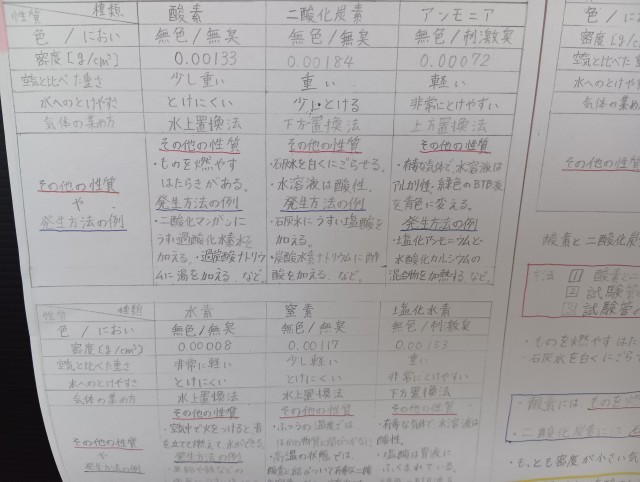 性質 種類 酸素 二酸化炭素 アンモニア
色 / におい 無色/無臭 無色/無臭 無色/刺激臭
密度〔g/cm³〕 0.00133 0.00184 0.00072
空気と比べた重さ 少し重い 重い 軽い
水へのとけやすさ とけにくい 少しとける 非常にとけやすい
気体の集め方 水上置換法 下方置換法 上方置換法
その他の性質
や
発生方法の例
その他の性質
・ものを燃やす
はたらきがある。
発生方法の例
・二酸化マンガンに
うすい過酸化水素水を
加える。・過炭酸ナトリウ
ムに湯を加える など。
その他の性質
・石灰水を白くにごらせる。
・水溶液は酸性。
発生方法の例
・石灰水にうすい塩酸を
加える。
・炭酸水素ナトリウムに
酸を加える など。
その他の性質
・有毒な気体で、水溶液は
アルカリ性・緑色のBTB液
を青色に変える。
発生方法の例
・塩化アンモニウムと
水酸化カルシウムの
混合物を加熱する など。
性質 種類 水素 窒素 塩化水素
色 / におい 無色/無臭 無色/無臭 無色/刺激臭
密度〔g/cm³〕 0.00008 0.00117 0.00153
空気と比べた重さ 非常に軽い 少し軽い 重い
水へのとけやすさ とけにくい とけにくい 非常にとけやすい
気体の集め方 水上置換法 水上置換法 下方置換法
その他の性質
や
発生方法の例
その他の性質
・空気中で火をつけると音
を立てて燃えて、水ができる。
発生方法の例
その他の性質
・ふつうの温度では
・高温の状態では、
その他の性質
・有毒な気体で、水溶液は
酸性。
・塩酸は胃液に
ふくまれている。
色 / に
密度〔g/c
空気と比べた重
水へのとけやす
気体の集め
その他の性質
酸素と二酸化炭
方法 1 酸素と
2 試験管
3 試験管
・ものを燃やすはた
・石灰水を白くにごら
・酸素には、ものを
・二酸化炭素に
・もっとも密度が小さい気